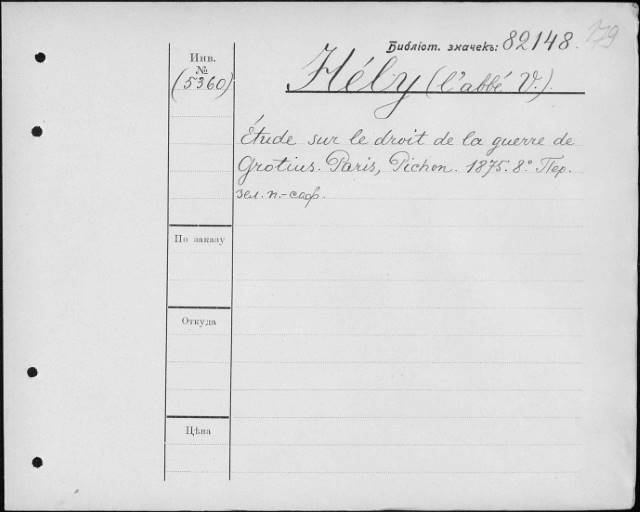 179
Библіот. значекъ: 82148.
Инв.
№
(5360)
Hély (l'abbé V.).
Étude sur le droit de la guerre de
Grotius. Paris, Pichon. 1875. 8º Пер.
зел. п.-саф.
По заказу
Откуда
Цѣна